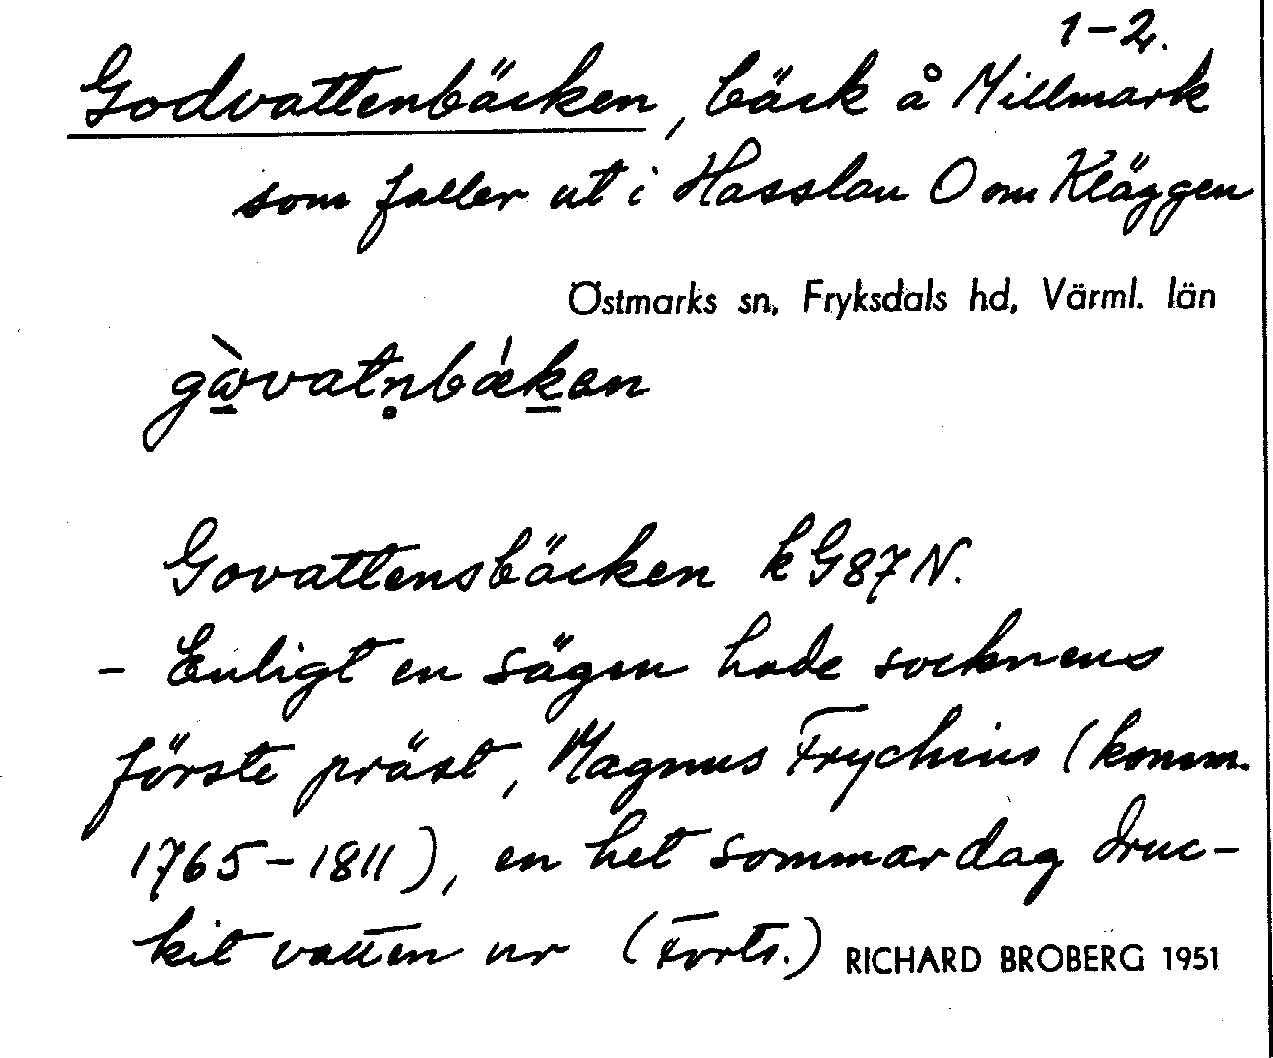 1-2.
Godvattenbäcken, bäck å Millmark
som faller ut i Hasslan O om Kläggen
Östmarks sn, Fryksdals hd, Värml. län
gὼ̱vatn̥bǽḵen
Govattensbäcken kG87N.
- Enligt en sägen hade socknens
förste präst, Magnus Frychius (komm.
1765-1811), en het sommardag druc-
kit vatten ur (Forts.)
RICHARD BROBERG 1951